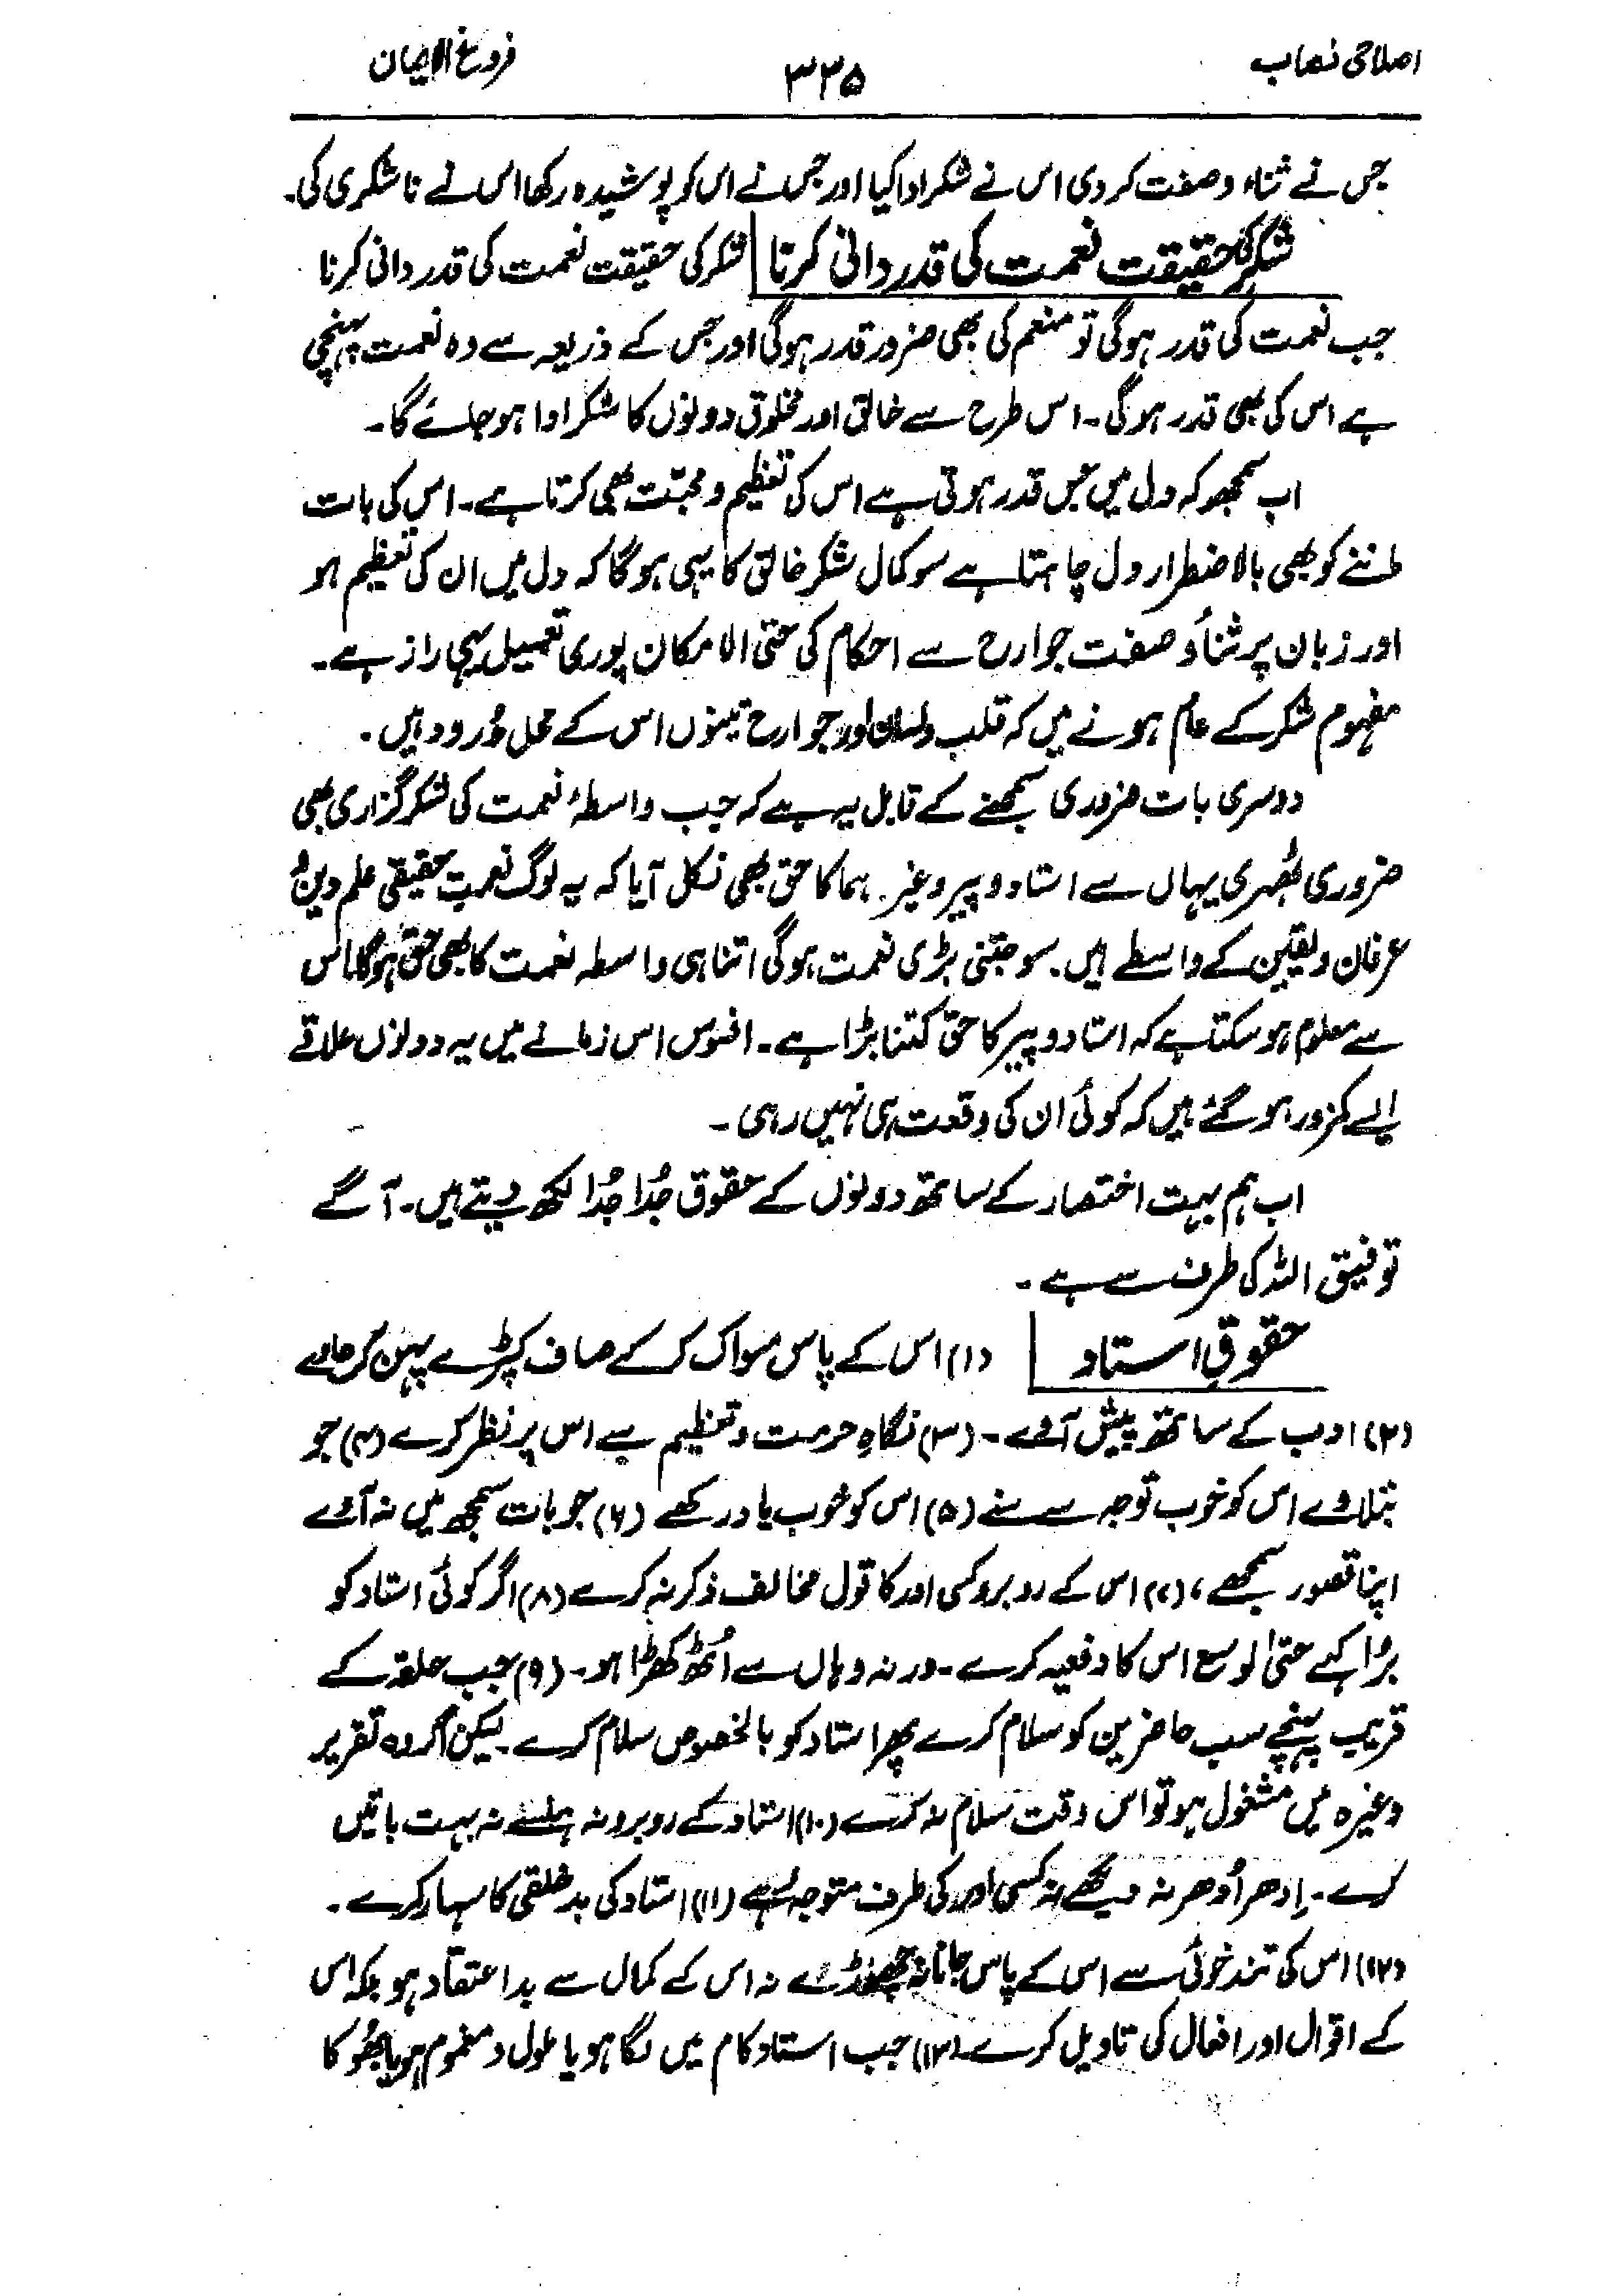 اصلاحی نصاب ۳۳۵ فروع الایمان
جس نے ثناء و صفت کر دی اس نے شکر ادا کیا اور جس نے اس کو پوشیدہ رکھا اس نے ناشکری کی۔
شکر کی حقیقت نعمت کی قدردانی کرنا شکر کی حقیقت نعمت کی قدردانی کرنا
جب نعمت کی قدر ہوگی تو منعم کی بھی ضرور قدر ہوگی اور جس کے ذریعہ سے وہ نعمت پہنچی
ہے اس کی بھی قدر ہوگی۔ اس طرح سے خالق اور مخلوق دونوں کا شکر ادا ہو جائے گا۔
اب سمجھو کہ دل میں جس قدر ہوتی ہے اس کی تعظیم و محبت بھی کرتا ہے۔ اس کی بات
ماننے کو بھی بالاضطرار دل چاہتا ہے سو کمال شکر خالق کا یہی ہوگا کہ دل میں ان کی تعظیم ہو
اور زبان پر ثناؤ صفت جوارح سے احکام کی حتی الامکان پوری تعمیل یہی راز ہے۔
مفہوم شکر کے عام ہونے میں کہ قلب ولسان اور جوارح تینوں اس کے محل ورود ہیں۔
دوسری بات ضروری سمجھنے کے قابل یہ ہے کہ جب واسطۂ نعمت کی شکر گزاری بھی
ضروری ٹھہری یہاں سے استاد و پیر وغیرہما کا حق بھی نکل آیا کہ یہ لوگ نعمت حقیقی علم دین و
عرفان و یقین کے واسطے ہیں۔ سو جتنی بڑی نعمت ہوگی اتنا ہی واسطہ نعمت کا بھی حق ہوگا۔ اس
سے معلوم ہو سکتا ہے کہ استاد و پیر کا حق کتنا بڑا ہے۔ افسوس اس زمانے میں یہ دونوں علاقے
ایسے کمزور ہو گئے ہیں کہ کوئی ان کی وقعت ہی نہیں رہی۔
اب ہم بہت اختصار کے ساتھ دونوں کے حقوق جُدا جُدا لکھ دیتے ہیں۔ آگے
توفیق اللہ کی طرف سے ہے۔
حقوقِ استاد (۱) اس کے پاس مسواک کر کے صاف کپڑے پہن کر جاوے
(۲) ادب کے ساتھ پیش آوے۔ (۳) نگاہِ حرمت و تعظیم سے اس پر نظر کرے (۴) جو
بتلاوے اس کو خوب توجہ سے سنے (۵) اس کو خوب یاد رکھے (۶) جو بات سمجھ میں نہ آوے
اپنا قصور سمجھے، (۷) اس کے روبرو کسی اور کا قول مخالف ذکر نہ کرے (۸) اگر کوئی استاد کو
بُرا کہے حتی الوسع اس کا دفعیہ کرے۔ ورنہ وہاں سے اُٹھ کھڑا ہو۔ (۹) جب حلقہ کے
قریب پہنچے سب حاضرین کو سلام کرے پھر استاد کو بالخصوص سلام کرے۔ لیکن اگر وہ تقریر
وغیرہ میں مشغول ہو تو اس وقت سلام نہ کرے (۱۰) استاد کے روبرو نہ ہنسے نہ بہت باتیں
کرے۔ اِدھر اُدھر نہ دیکھے نہ کسی اور کی طرف متوجہ رہے (۱۱) استاد کی بد خلقی کا سہار کرے۔
(۱۲) اس کی تند خوئی سے اس کے پاس جانا نہ چھوڑے نہ اس کے کمال سے بد اعتقاد ہو بلکہ اس
کے اقوال اور افعال کی تاویل کرے (۱۳) جب استاد کام میں لگا ہو یا ملول و مغموم ہو یا بھُوکا